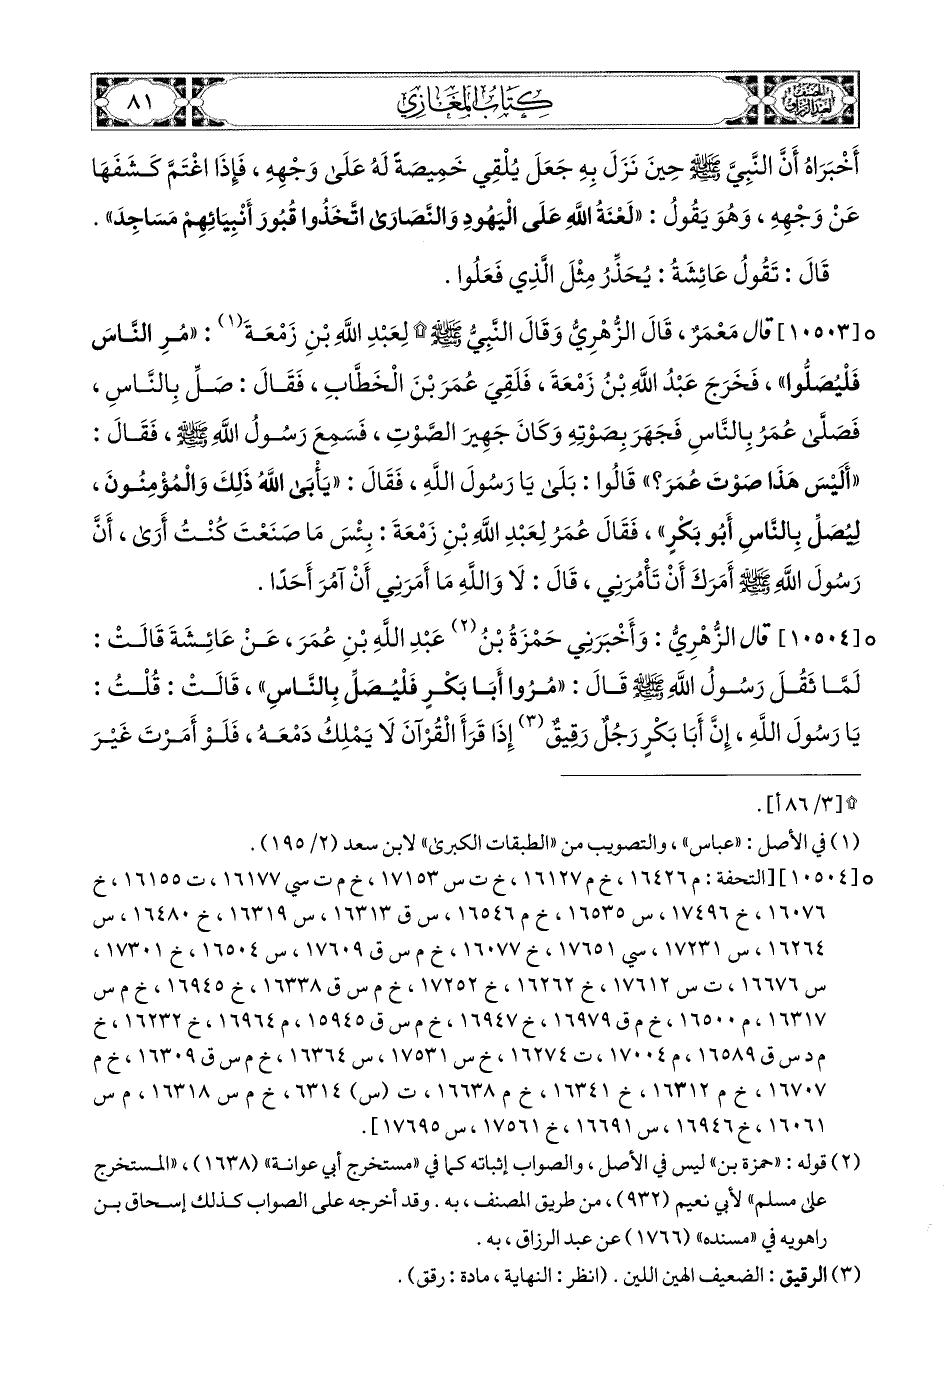 المصنف
لعبد الرزاق
كتاب المغازي
٨١
أَخْبَرَاهُ أَنَّ النَّبِيَّ ﷺ حِينَ نَزَلَ بِهِ جَعَلَ يُلْقِي خَمِيصَةً لَهُ عَلَى وَجْهِهِ ، فَإِذَا اغْتَمَّ كَشَفَهَا
عَنْ وَجْهِهِ ، وَهُوَ يَقُولُ : «لَعْنَةُ اللَّهِ عَلَى الْيَهُودِ وَالنَّصَارَى اتَّخَذُوا قُبُورَ أَنْبِيَائِهِمْ مَسَاجِدَ» .
قَالَ : تَقُولُ عَائِشَةُ : يُحَذِّرُ مِثْلَ الَّذِي فَعَلُوا .
٥ [١٠٥٠٣] قال مَعْمَرٌ ، قَالَ الزُّهْرِيُّ وَقَالَ النَّبِيُّ ﷺ۩ لِعَبْدِ اللَّهِ بْنِ زَمْعَةَ(١) : «مُرِ النَّاسَ
فَلْيُصَلُّوا» ، فَخَرَجَ عَبْدُ اللَّهِ بْنُ زَمْعَةَ ، فَلَقِيَ عُمَرَ بْنَ الْخَطَّابِ ، فَقَالَ : صَلِّ بِالنَّاسِ ،
فَصَلَّى عُمَرُ بِالنَّاسِ فَجَهَرَ بِصَوْتِهِ وَكَانَ جَهِيرَ الصَّوْتِ ، فَسَمِعَ رَسُولُ اللَّهِ ﷺ ، فَقَالَ :
«أَلَيْسَ هَذَا صَوْتَ عُمَرَ؟» قَالُوا : بَلَى يَا رَسُولَ اللَّهِ ، فَقَالَ : «يَأْبَى اللَّهُ ذَلِكَ وَالْمُؤْمِنُونَ ،
لِيُصَلِّ بِالنَّاسِ أَبُو بَكْرٍ» ، فَقَالَ عُمَرُ لِعَبْدِ اللَّهِ بْنِ زَمْعَةَ : بِئْسَ مَا صَنَعْتَ كُنْتُ أَرَى ، أَنَّ
رَسُولَ اللَّهِ ﷺ أَمَرَكَ أَنْ تَأْمُرَنِي ، قَالَ : لَا وَاللَّهِ مَا أَمَرَنِي أَنْ آمُرَ أَحَدًا .
٥ [١٠٥٠٤] قال الزُّهْرِيُّ : وَأَخْبَرَنِي حَمْزَةُ بْنُ(٢) عَبْدِ اللَّهِ بْنِ عُمَرَ ، عَنْ عَائِشَةَ قَالَتْ :
لَمَّا ثَقُلَ رَسُولُ اللَّهِ ﷺ قَالَ : «مُرُوا أَبَا بَكْرٍ فَلْيُصَلِّ بِالنَّاسِ» ، قَالَتْ : قُلْتُ :
يَا رَسُولَ اللَّهِ ، إِنَّ أَبَا بَكْرٍ رَجُلٌ رَقِيقٌ(٣) إِذَا قَرَأَ الْقُرْآنَ لَا يَمْلِكُ دَمْعَهُ ، فَلَوْ أَمَرْتَ غَيْرَ
۩ [٣/ ٨٦ أ] .
(١) في الأصل : «عباس» ، والتصويب من «الطبقات الكبرى» لابن سعد (٢/ ١٩٥) .
٥ [١٠٥٠٤] [التحفة : م ١٦٤٢٦ ، خ م ١٦١٢٧ ، خ ت س ١٧١٥٣ ، خ م ت سي ١٦١٧٧ ، ت ١٦١٥٥ ، خ
١٦٠٧٦ ، خ ١٧٤٩٦ ، س ١٦٥٣٥ ، خ م ١٦٥٤٦ ، س ق ١٦٣١٣ ، س ١٦٣١٩ ، خ ١٦٤٨٠ ، س
١٦٢٦٤ ، س ١٧٢٣١ ، سي ١٧٦٥١ ، خ ١٦٠٧٧ ، خ م س ق ١٧٦٠٩ ، س ١٦٥٠٤ ، خ ١٧٣٠١ ،
س ١٦٦٧٦ ، ت س ١٧٦١٢ ، خ ١٦٢٦٢ ، خ ١٧٢٥٢ ، خ م س ق ١٦٣٣٨ ، خ ١٦٩٤٥ ، خ م س
١٦٣١٧ ، م ١٦٥٠٠ ، خ م ق ١٦٩٧٩ ، خ ١٦٩٤٧ ، خ م س ق ١٥٩٤٥ ، م ١٦٩٦٤ ، خ ١٦٢٣٢ ، خ
م د س ق ١٦٥٨٩ ، م ١٧٠٠٤ ، ت ١٦٢٧٤ ، خ س ١٧٥٣١ ، س ١٦٣٦٤ ، خ م س ق ١٦٣٠٩ ، خ م
١٦٧٠٧ ، خ م ١٦٣١٢ ، خ ١٦٣٤١ ، خ م ١٦٦٣٨ ، ت (س) ٦٣١٤ ، خ م س ١٦٣١٨ ، م س
١٦٠٦١ ، خ ١٦٩٤٦ ، س ١٦٦٩١ ، خ ١٧٥٦١ ، س ١٧٦٩٥] .
(٢) قوله : «حمزة بن» ليس في الأصل ، والصواب إثباته كما في «مستخرج أبي عوانة» (١٦٣٨) ، «المستخرج
على مسلم» لأبي نعيم (٩٣٢) ، من طريق المصنف ، به . وقد أخرجه على الصواب كذلك إسحاق بن
راهويه في «مسنده» (١٧٦٦) عن عبد الرزاق ، به .
(٣) الرقيق : الضعيف الهين اللين . (انظر : النهاية ، مادة : رقق) .